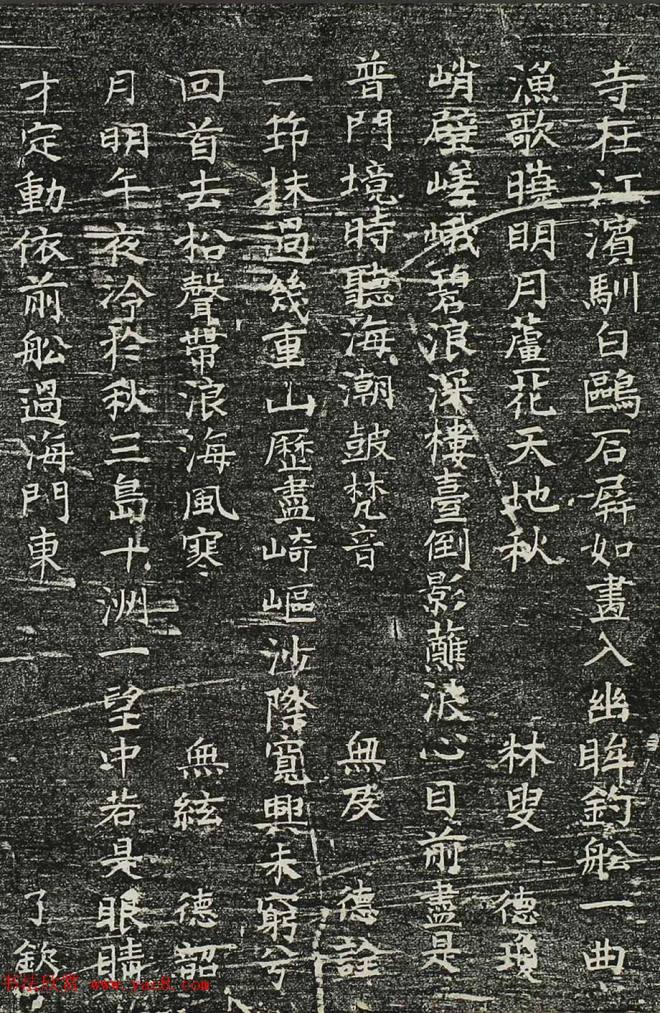 寺在江濱馴白鷗石屏如畫入幽眸釣船一曲
漁歌曉明月蘆花天地秋 林叟 德瓊
峭壁嵯峨碧浪深樓臺倒影蘸波心目前盡是
普門境時聽海潮皷梵音 無及 德詮
一筇抹過幾重山歷盡崎嶇沙際寬興未窮兮
回首去松聲帶浪海風寒 無絃 德韶
月明午夜冷於秋三島十洲一望中若是眼睛
才定動依前舩過海門東 了欽
书法欣赏 www.yac8.com